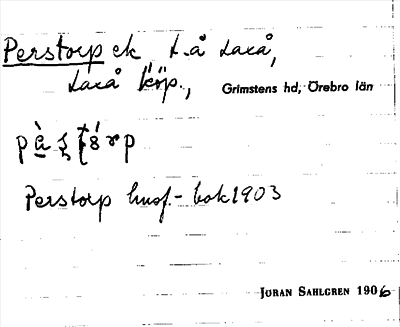 Perstorp ek L-å Laxå,
Laxå köp., Grimstens hd, Örebro län
Perstorp husf.-bok 1903
JÖRAN SAHLGREN 1906